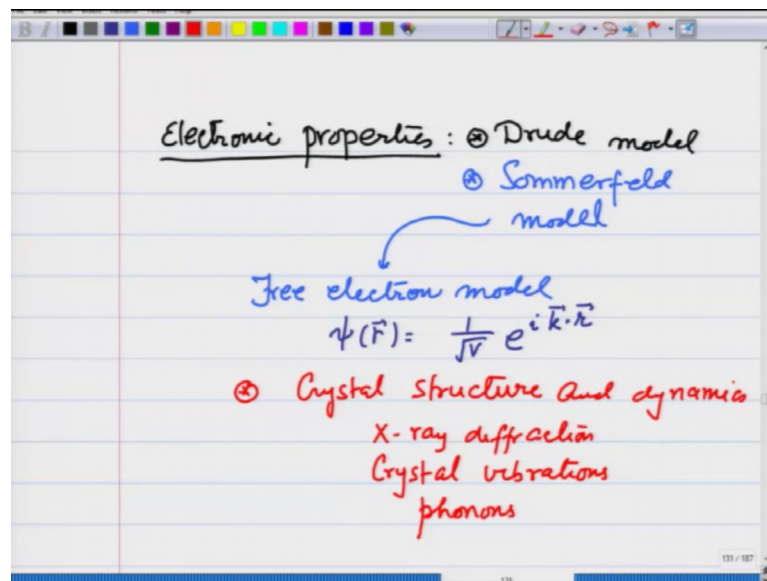 Electronic properties: ⊛ Drude model
⊛ Sommerfeld
model
Free electron model
ψ(r⃗) = 1/√V e^{i k⃗·r⃗}
⊛ Crystal structure and dynamics
X-ray diffraction
Crystal vibrations
phonons
131 / 187